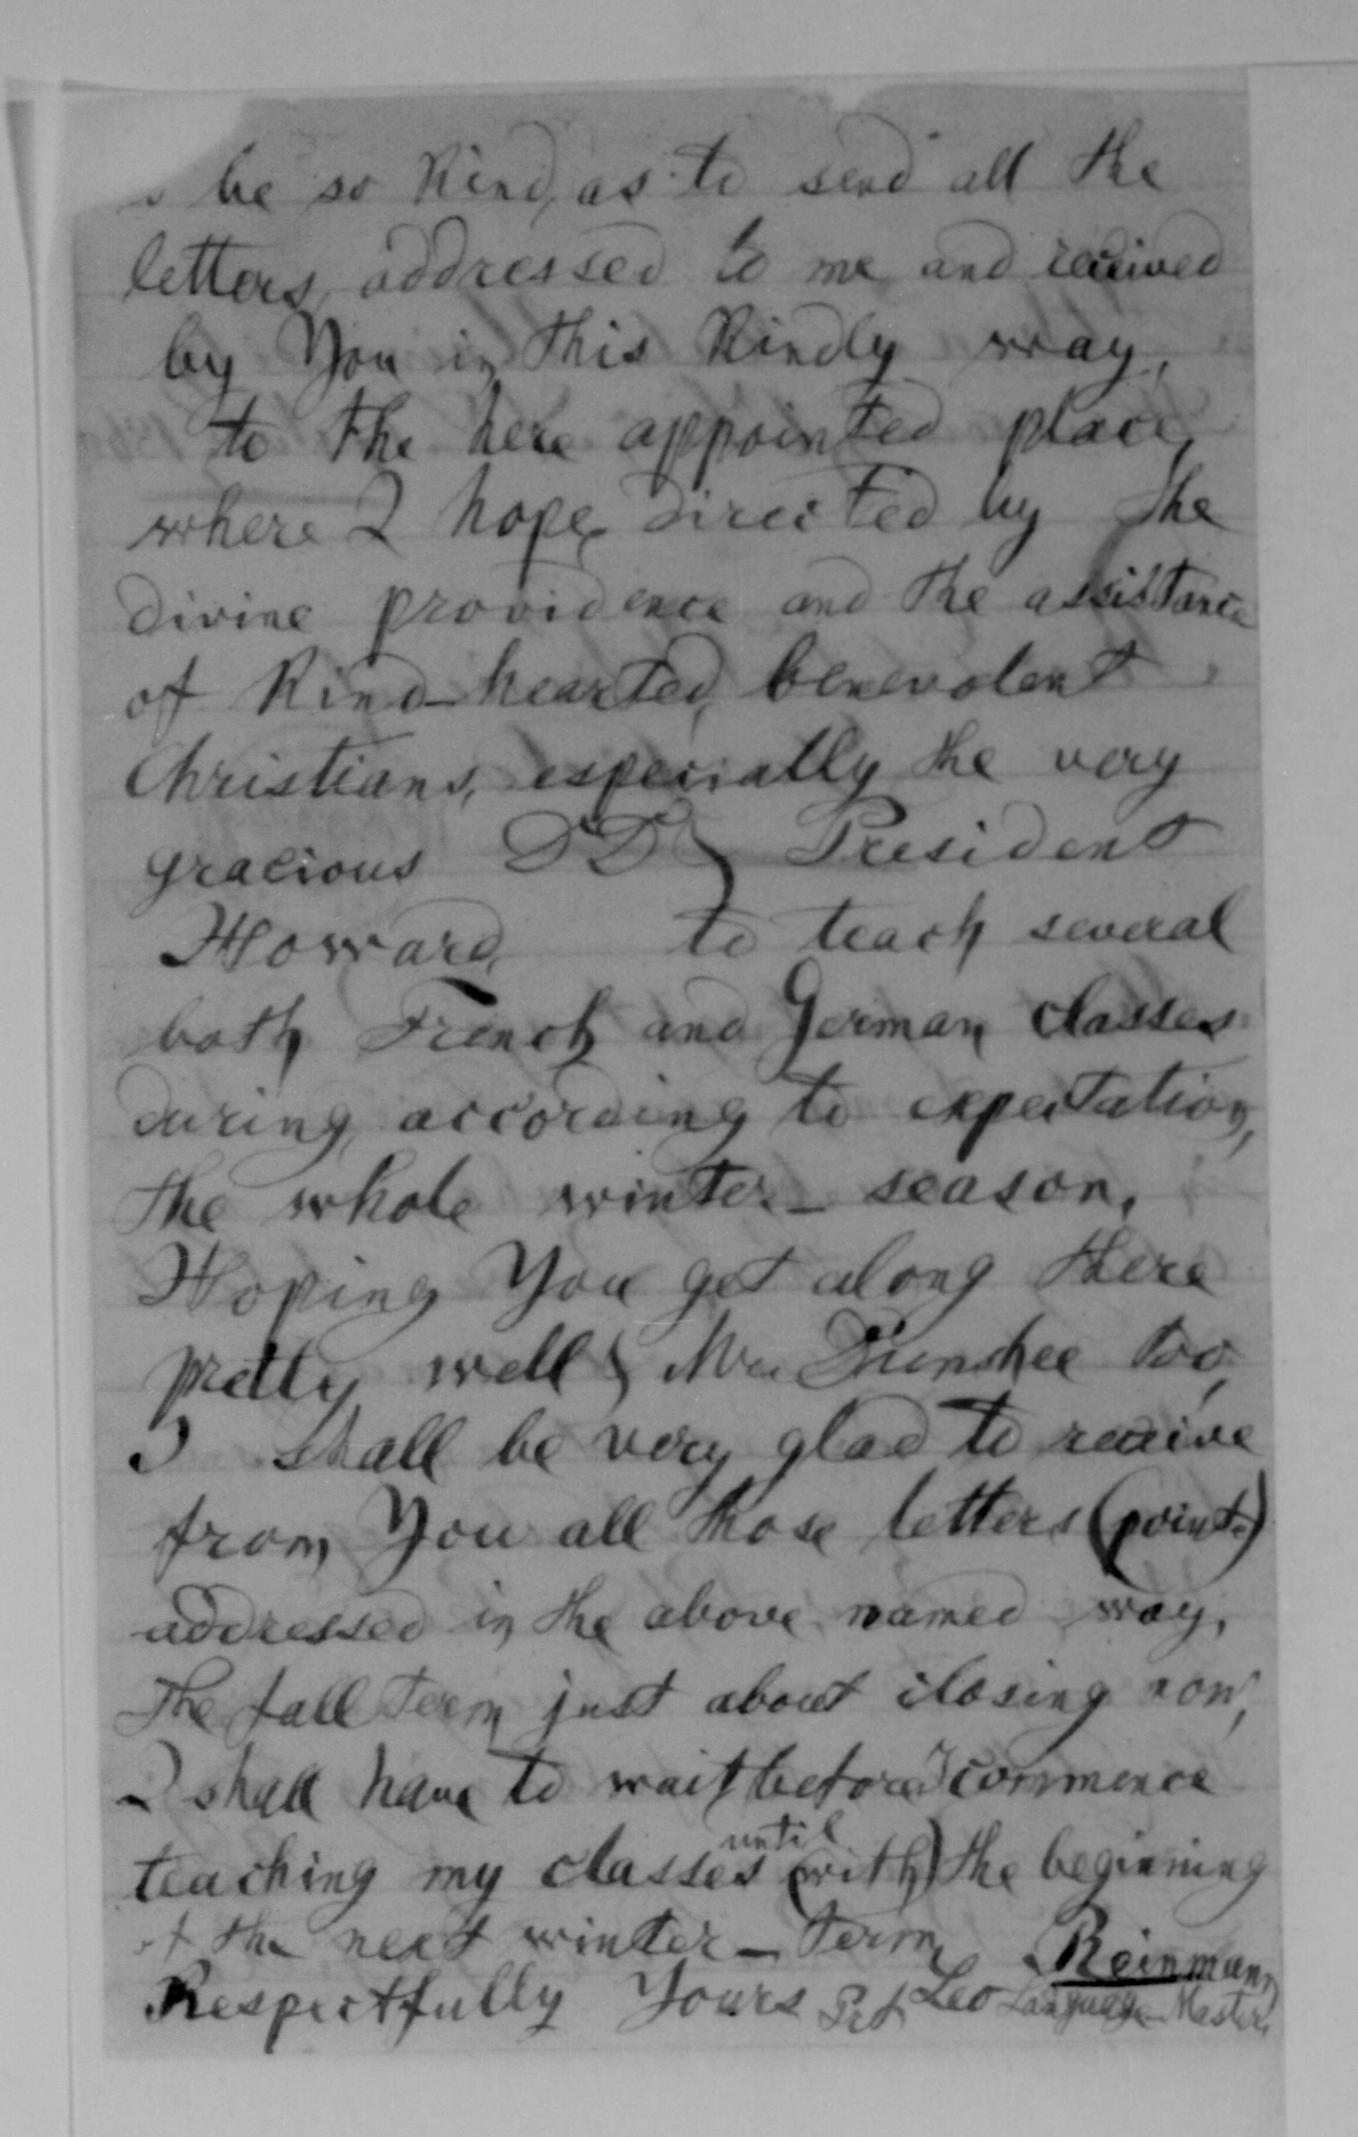 be so kind, as to send all the
letters, addressed to me and received
by You in this kindly way,
to the here appointed place,
where I hope, directed by the
divine providence and the assistance
of kind-hearted, benevolent
Christians, especially the very
gracious DD & President
Howard, to teach several
both French and German classes
during, according to expectation,
the whole winter-season.
Hoping You get along there
pretty well & too,
I shall be very glad to receive
from You all those letters (point.)
addressed in the above named way.
The fall term just about closing now,
I shall have to wait before I commence
until
teaching my classes (with) the beginning
of the next winter-term.
Reinmann
Respectfully Yours Prf. Leo Language-Master.